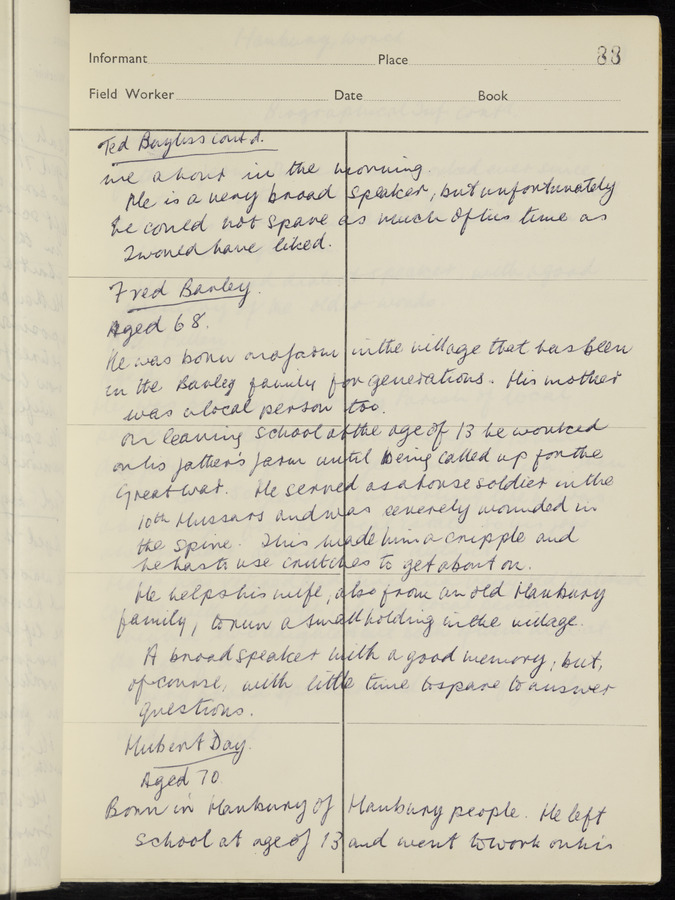 Informant Place 33
Field Worker Date Book
Ted Bayliss contd.
me about in the morning.
He is a very broad speaker, but unfortunately
he could not spare as much of his time as
I would have liked.
Fred Banley.
Aged 68.
He was born on a farm in the village that has been
in the Banley family for generations. His mother
was a local person too.
On leaving School at the age of 13 he worked
on his father's farm until being called up for the
Great War. He served as a horse soldier in the
10th Hussars and was severely wounded in
the spine. This made him a cripple and
he has to use crutches to get about on.
He helps his wife, also from an old Hanbury
family, to run a small holding in the village.
A broad speaker with a good memory, but,
of course, with little time to spare to answer
questions.
Hubert Day.
Aged 70
Born in Hanbury of Hanbury people. He left
School at age of 13 and went to work on his